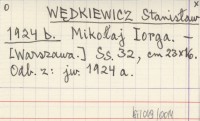 WĘDKIEWICZ Stanisław
1924 b. Mikołaj Iorga. –
[Warszawa.] Ss. 32, cm 23x16.
Odb. z: jw. 1924 a.